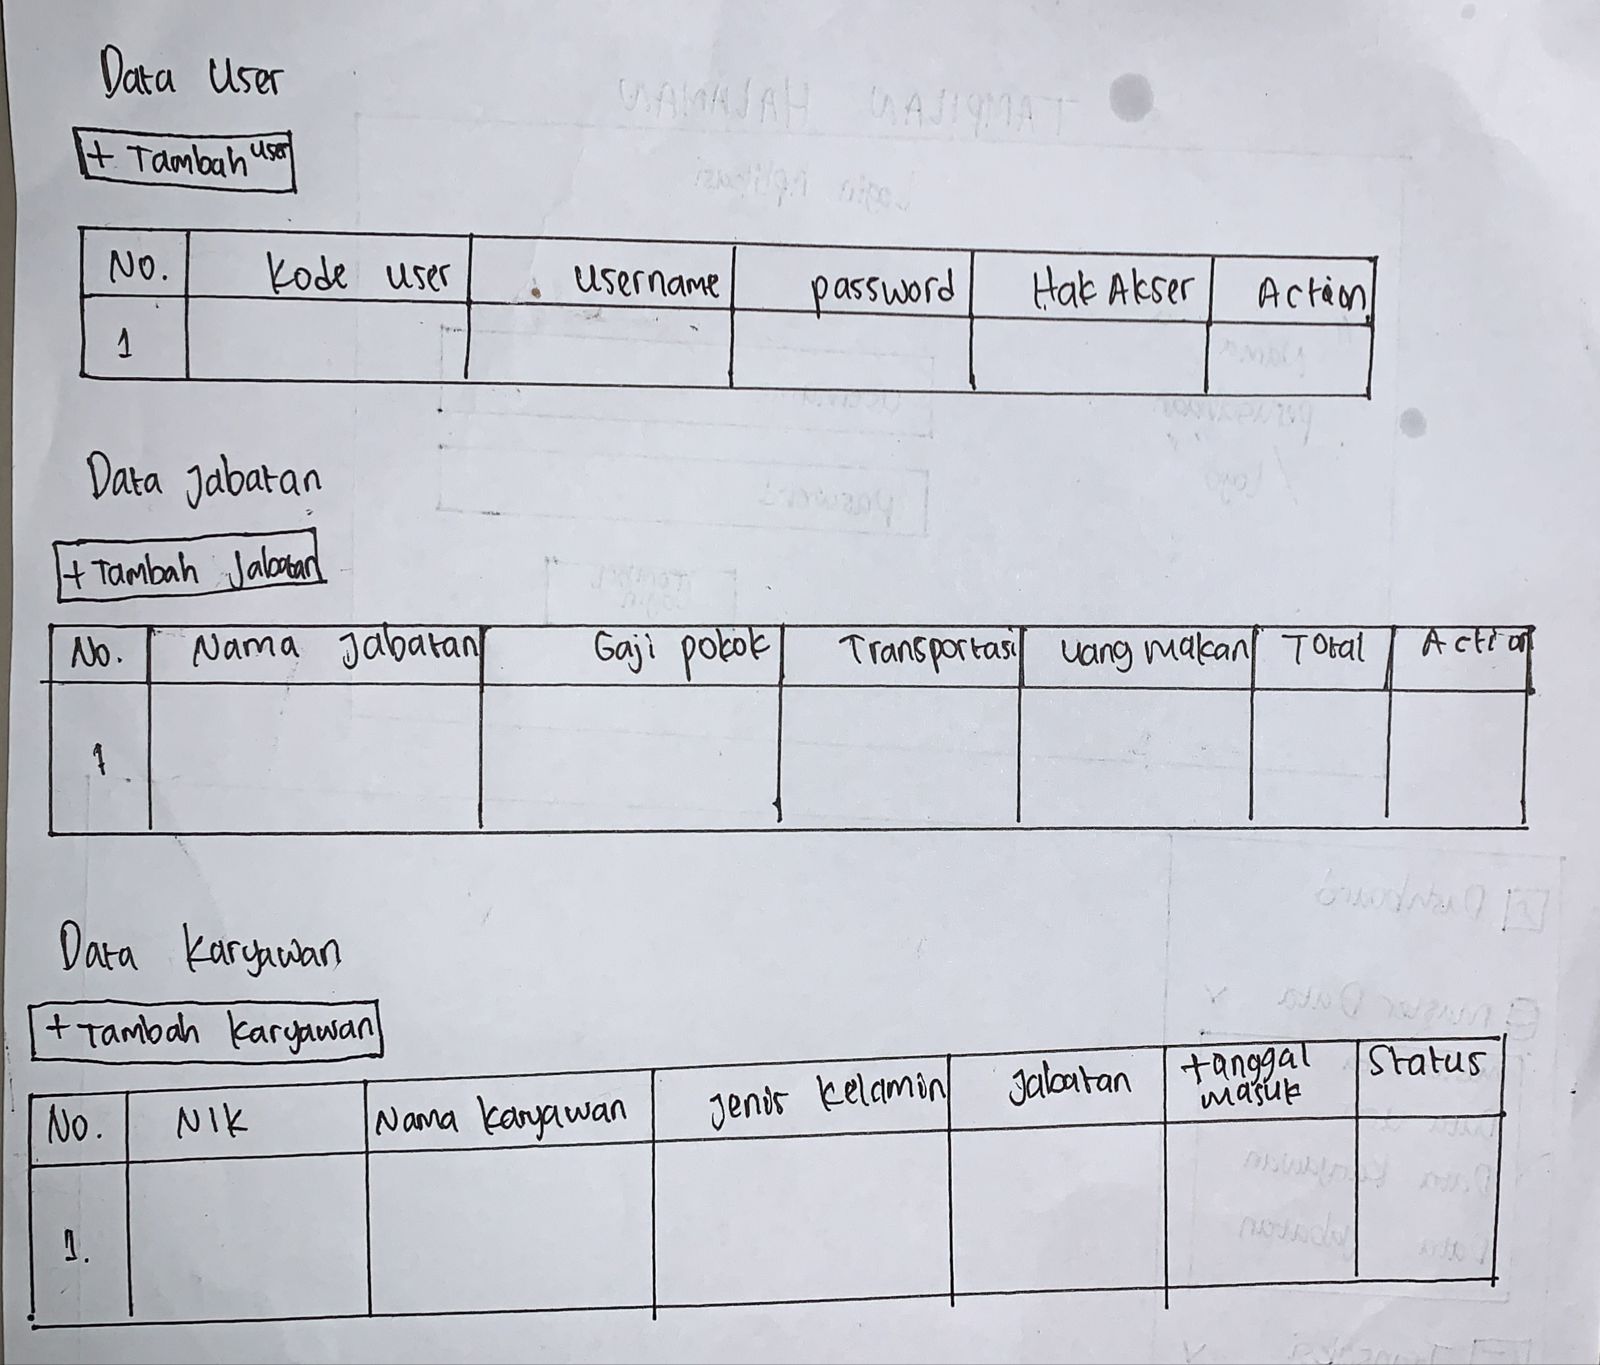 Data User
+ Tambah user
No. Kode user username password Hak Akser Action
1
Data Jabatan
+ Tambah Jabatan
No. Nama Jabatan Gaji pokok Transportasi uang makan Total Action
1
Data Karyawan
+ Tambah Karyawan
No. NIK Nama Karyawan Jenis Kelamin Jabatan tanggal masuk Status
1.